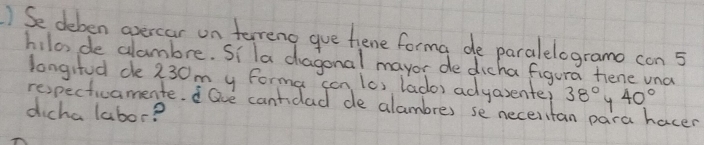 .) Se deben acercar un terreno que tiene forma de paralelogramo con 5
hilos de alambre. Si la diagonal mayor de dicha figura tiene una
longitud de 230m y forma con los lados adyasentes 38° y 40°
respectivamente. ¿Que cantidad de alambres se necesitan para hacer
dicha labor?